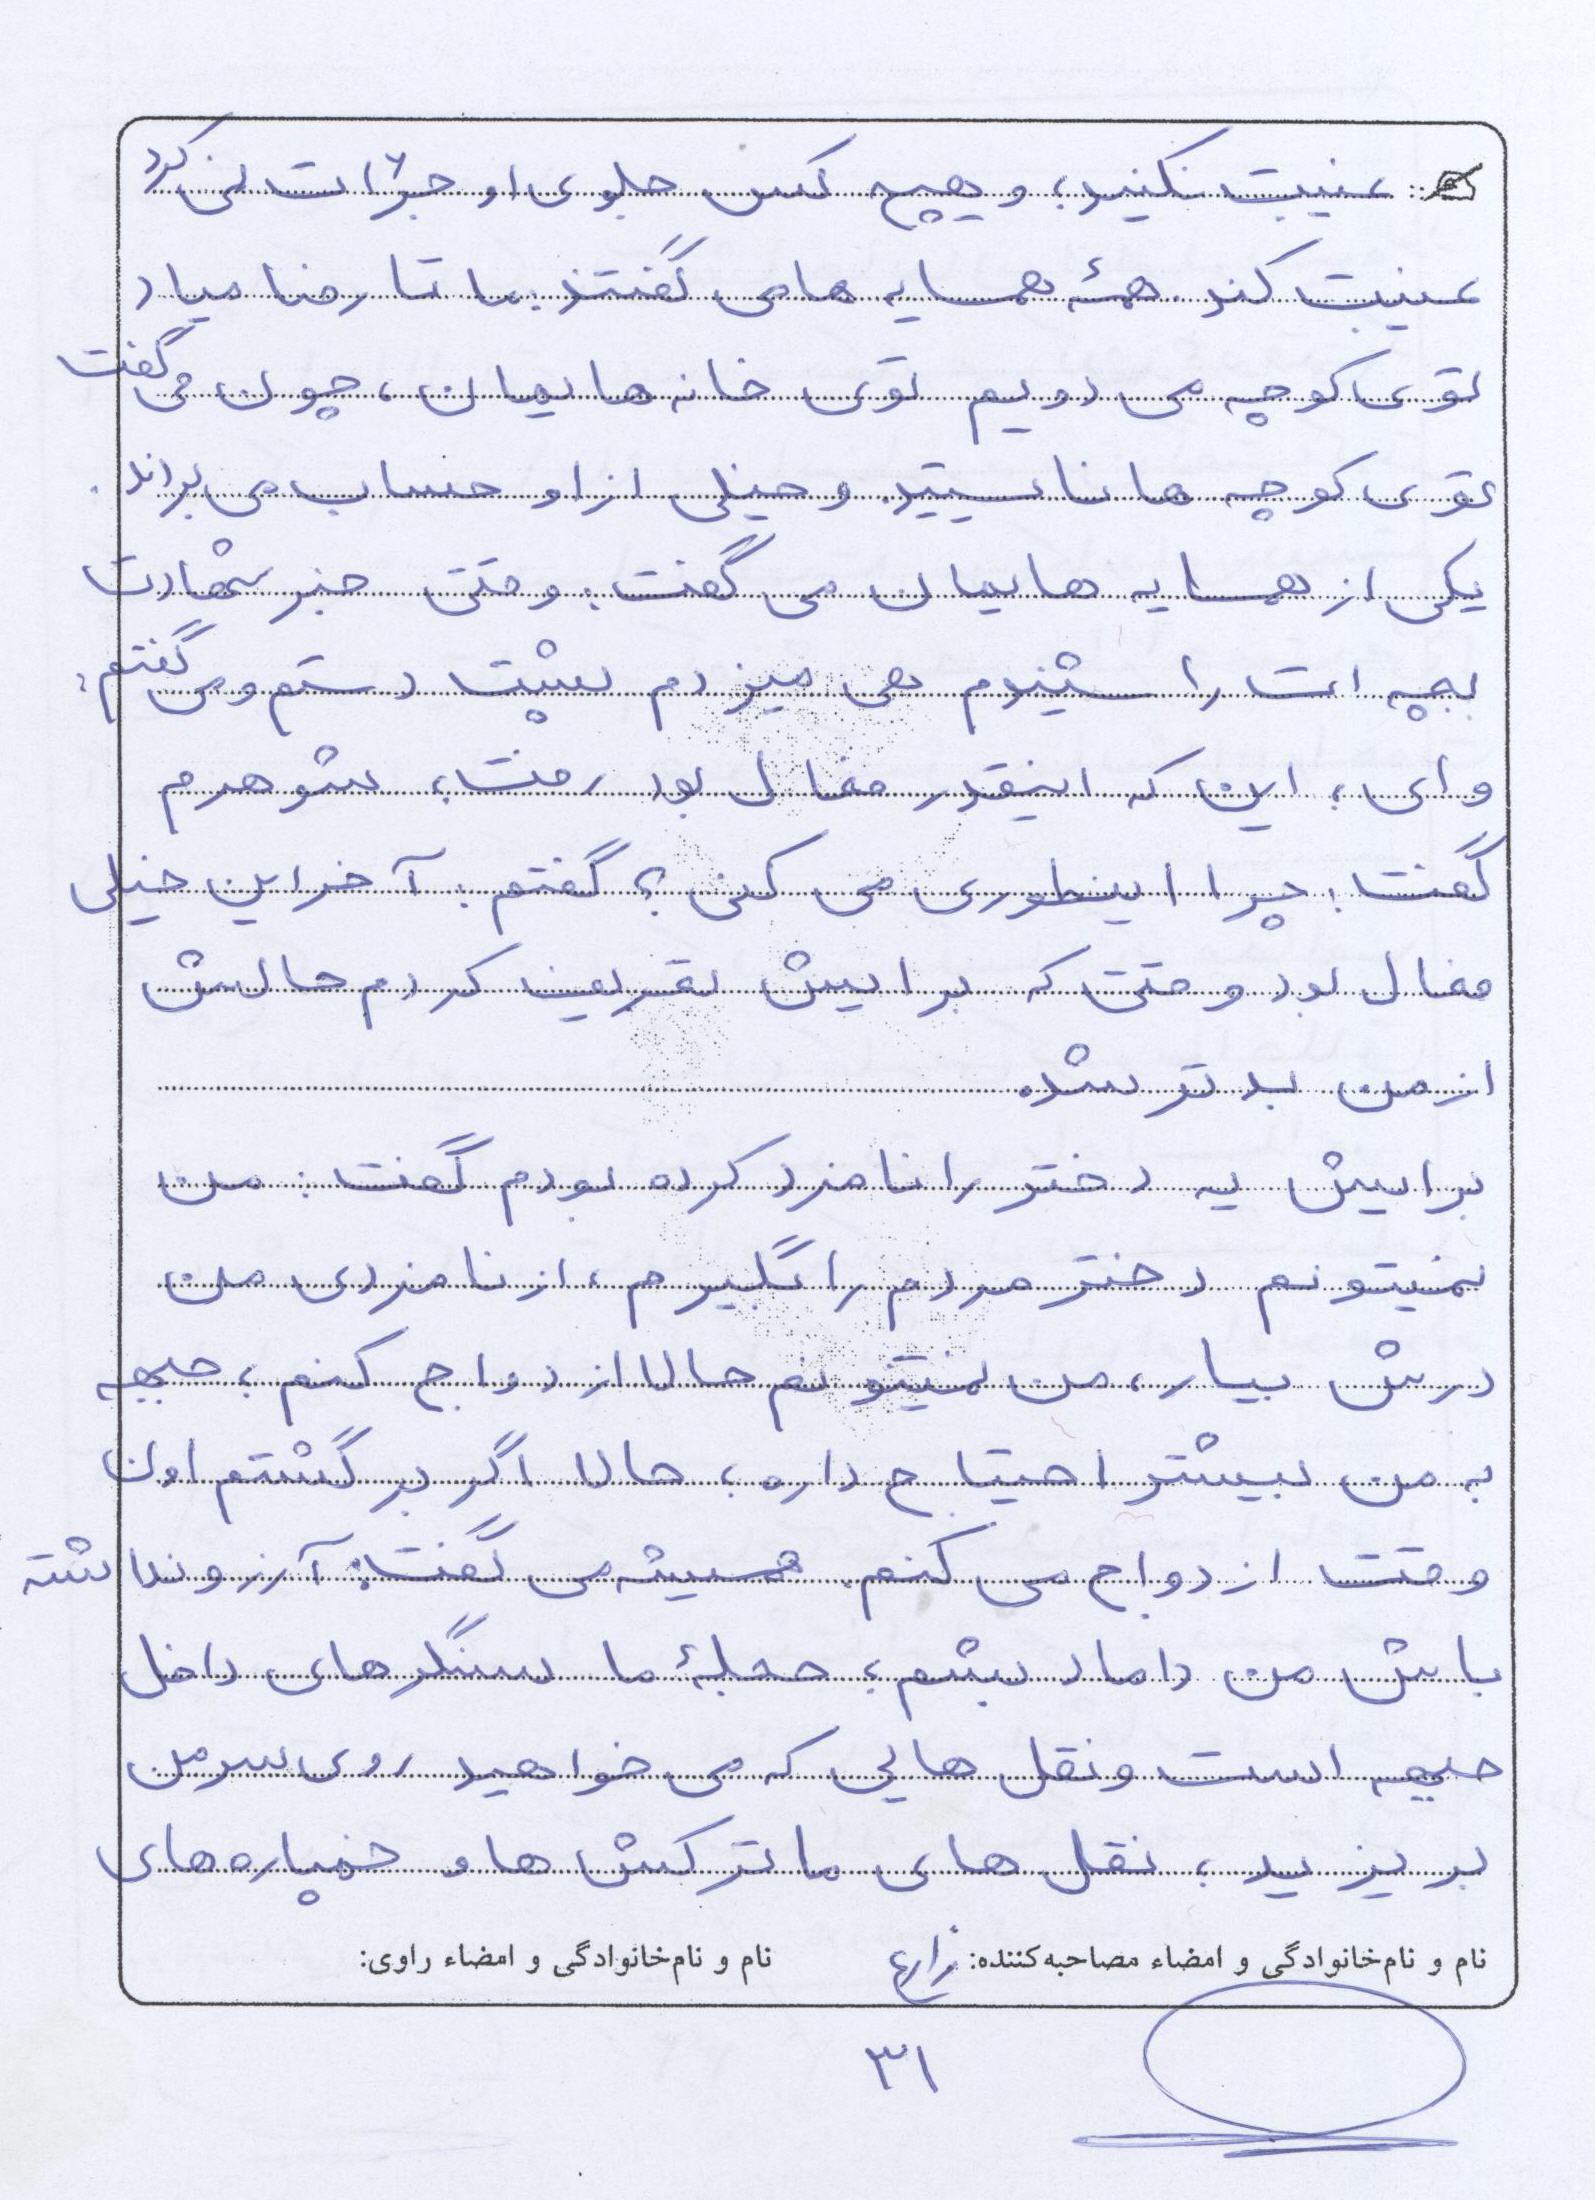 غیبت نکنید، و هیچ کس جلوی او جرأت نمی کرد
غیبت کند. همهٔ همسایه ها می گفتند: ما تا رضا میاد
توی کوچه می دویم توی خانه هایمان، چون می گفت
توی کوچه ها نایستید. و خیلی از او حساب می براند.
یکی از همسایه هایمان می گفت: وقتی خبر شهادت
بچه ات را شنیدم هی میزدم پشت دستم و می گفتم:
وای، این که اینقدر فعال بود رفت، شوهرم
گفت: چرا اینطوری می کنی؟ گفتم: آخر این خیلی
فعال بود وقتی که برایش تعریف کردم حالش
از من بدتر شد.
برایش یه دختر را نامزد کرده بودم گفت: من
نمیتونم دختر مردم را بگیرم، از نامزدی من
درش بیار، من نمیتونم حالا ازدواج کنم، جبهه
به من بیشتر احتیاج داره، حالا اگر برگشتم اون
وقت ازدواج می کنم. همیشه می گفت: آرزو نداشته
باش من داماد بشم، حجلهٔ ما سنگرهای داخل
جبهه است و نقل هایی که می خواهید روی سر من
بریزید، نقل های ما ترکش ها و خمپاره های
نام و نام‌خانوادگی و امضاء مصاحبه‌کننده: زارع
نام و نام‌خانوادگی و امضاء راوی:
۳۱